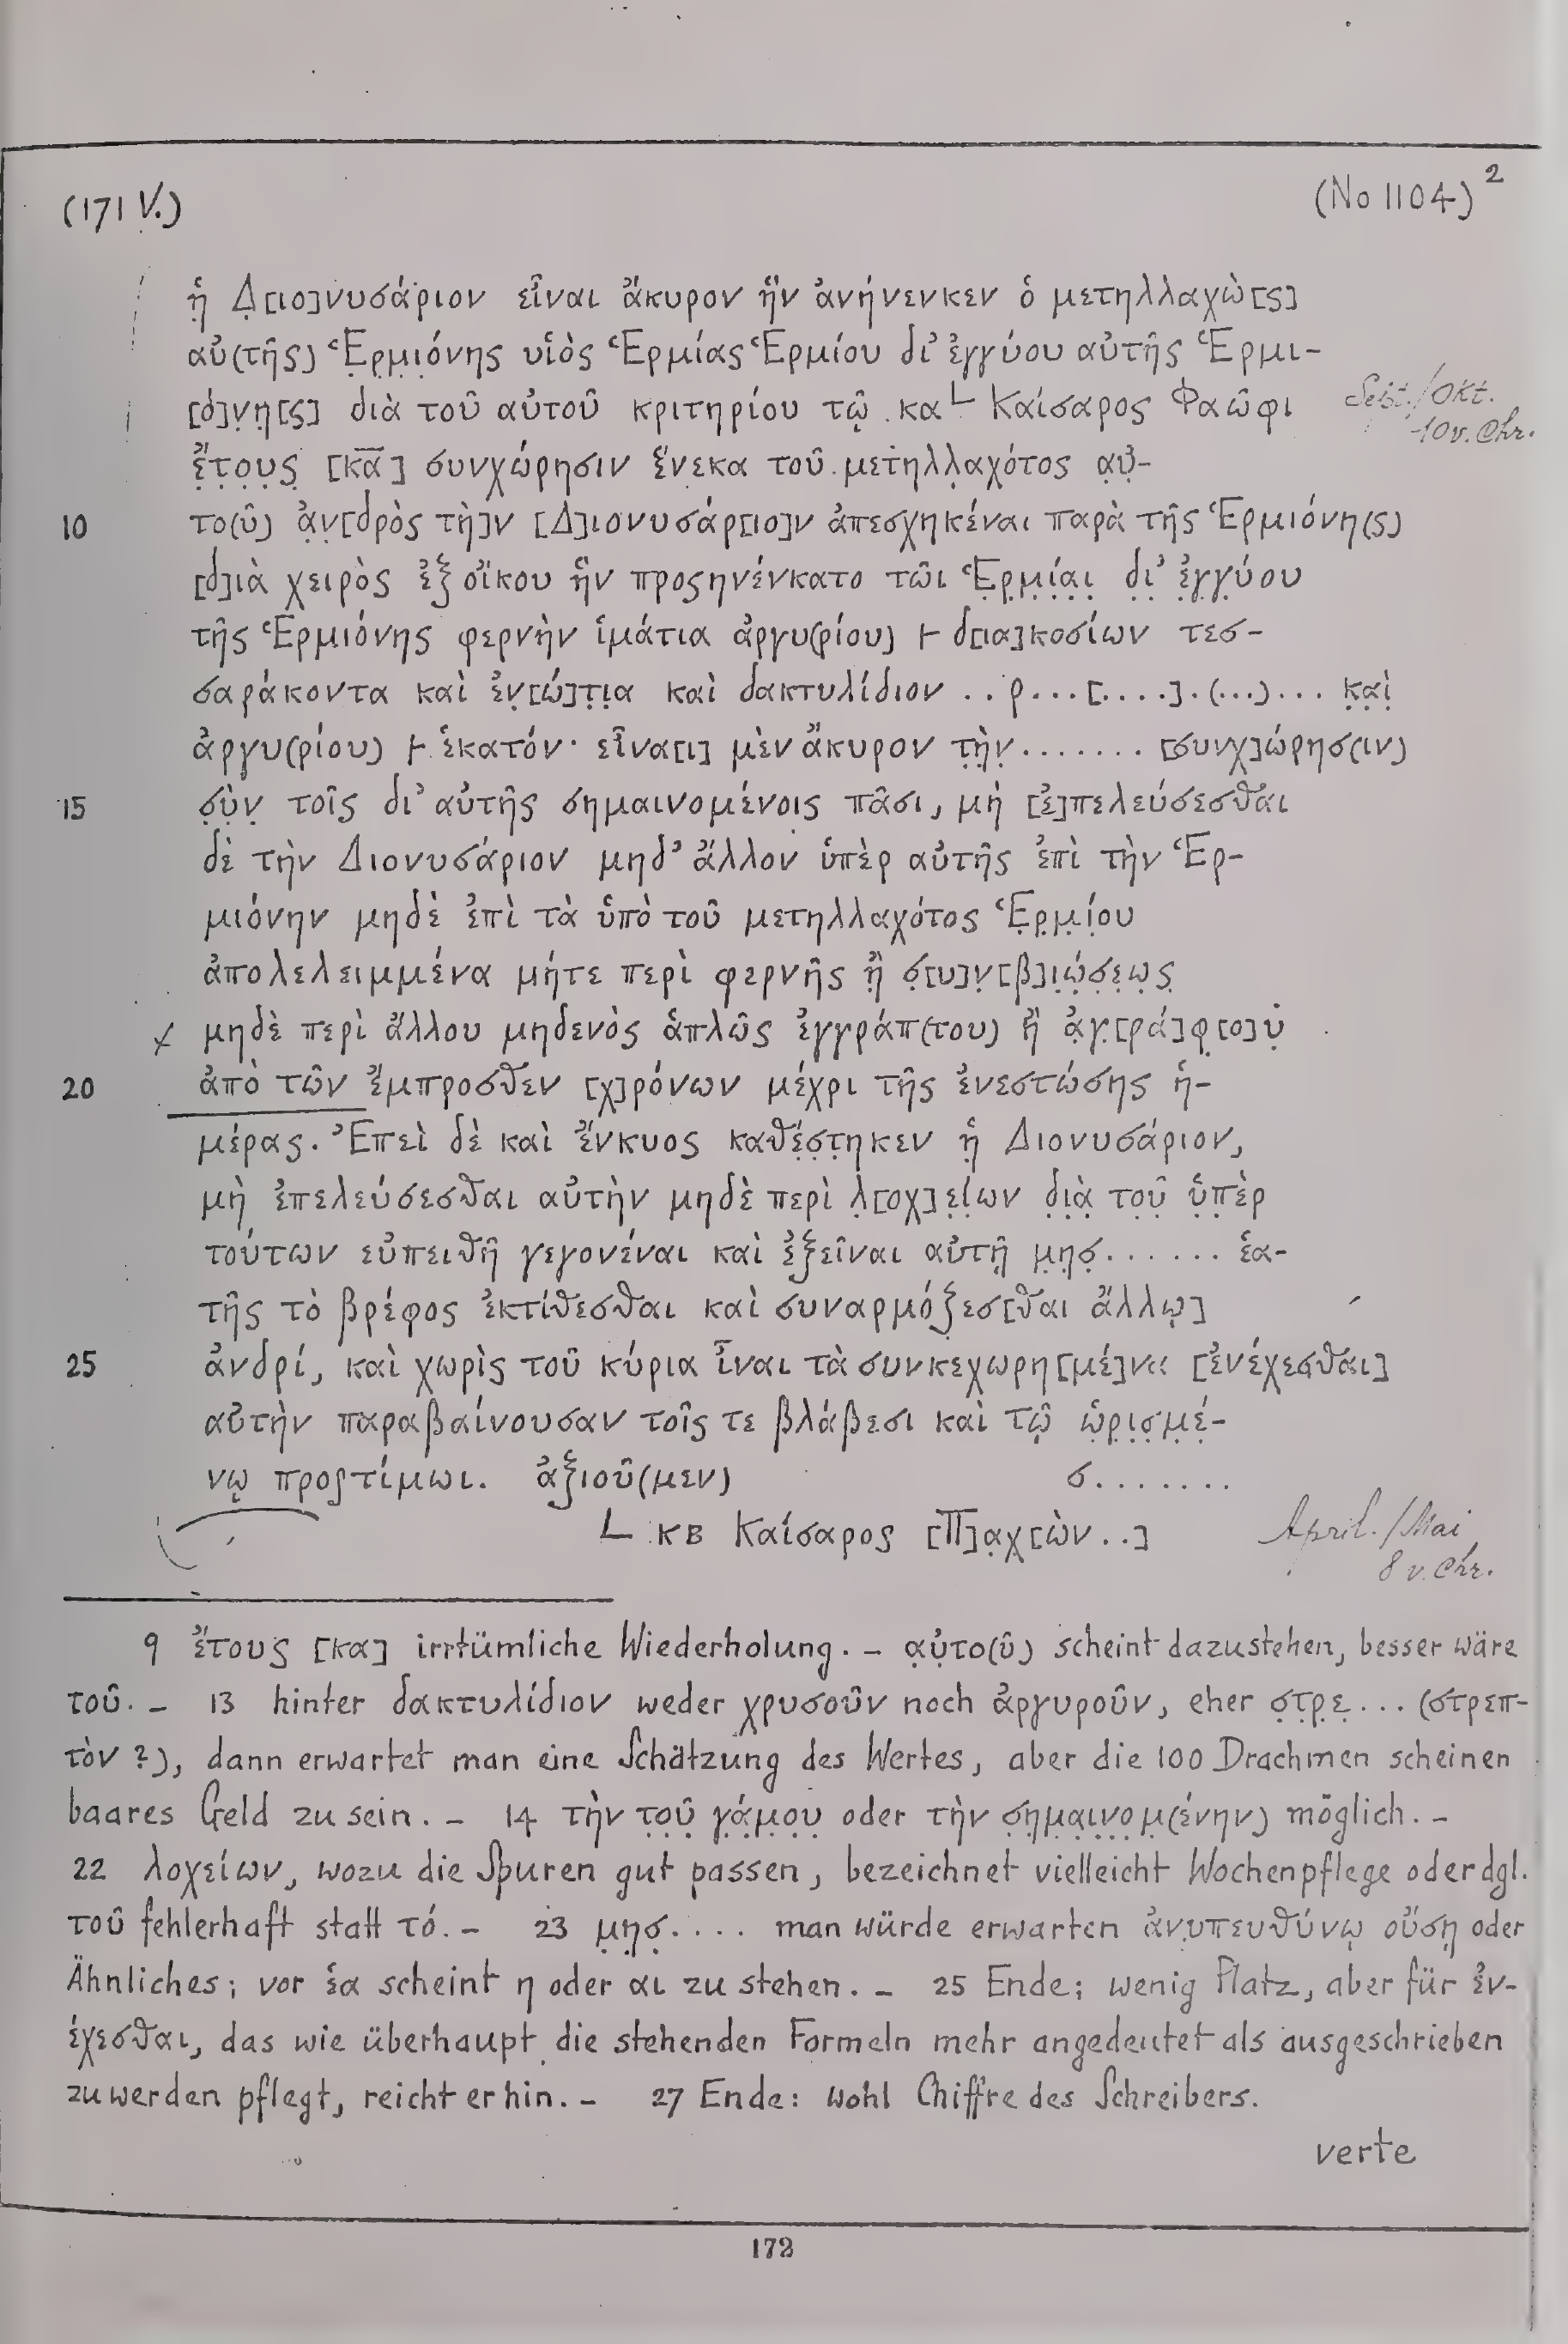 (171 V.)
(No 1104) 2
ἡ Δ[ιο]νυσάριον εἶναι ἄκυρον ἣν ἀνήνενκεν ὁ μετηλλαχὼ[ς]
αὐ(τῆς) Ἑρμιόνης υἱὸς Ἑρμίας Ἑρμίου δι' ἐγγύου αὐτῆς Ἑρμι-
[ό]νη[ς] διὰ τοῦ αὐτοῦ κριτηρίου τῷ κα L Καίσαρος Φαῶφι
Sept./Okt.
10 v. Chr.
ἔτους [κα] συνχώρησιν ἕνεκα τοῦ μετηλλαχότος αὐ-
10 το(ῦ) ἀν[δρὸς τὴ]ν [Δ]ιονυσάρ[ιο]ν ἀπεσχηκέναι παρὰ τῆς Ἑρμιόνη(ς)
[δ]ιὰ χειρὸς ἐξ οἴκου ἣν προσηνένκατο τῶι Ἑρμίαι δι' ἐγγύου
τῆς Ἑρμιόνης φερνὴν ἱμάτια ἀργυ(ρίου) ⊢ δ[ια]κοσίων τεσ-
σαράκοντα καὶ ἐν[ώ]τια καὶ δακτυλίδιον . . ρ . . . [. . . .] . (. . .) . . . καὶ
ἀργυ(ρίου) ⊢ ἑκατόν· εἶνα[ι] μὲν ἄκυρον τὴν . . . . . . . [συνχ]ώρησ(ιν)
15 σὺν τοῖς δι' αὐτῆς σημαινομένοις πᾶσι, μὴ [ἐ]πελεύσεσθαι
δὲ τὴν Διονυσάριον μηδ' ἄλλον ὑπὲρ αὐτῆς ἐπὶ τὴν Ἑρ-
μιόνην μηδὲ ἐπὶ τὰ ὑπὸ τοῦ μετηλλαχότος Ἑρμίου
ἀπολελειμμένα μήτε περὶ φερνῆς ἢ σ[υ]ν[β]ιώσεως
μηδὲ περὶ ἄλλου μηδενὸς ἁπλῶς ἐγγράπ(του) ἢ ἀγ[ρά]φ[ο]υ
20 ἀπὸ τῶν ἔμπροσθεν [χ]ρόνων μέχρι τῆς ἐνεστώσης ἡ-
μέρας. Ἐπεὶ δὲ καὶ ἔνκυος καθέστηκεν ἡ Διονυσάριον,
μὴ ἐπελεύσεσθαι αὐτὴν μηδὲ περὶ λ[οχ]είων διὰ τοῦ ὑπὲρ
τούτων εὐπειθῆ γεγονέναι καὶ ἐξεῖναι αὐτῇ μησ . . . . . . ἑα-
τῆς τὸ βρέφος ἐκτίθεσθαι καὶ συναρμόζεσ[θαι ἄλλῳ]
25 ἀνδρί, καὶ χωρὶς τοῦ κύρια ἶναι τὰ συνκεχωρη[μέ]να [ἐνέχεσθαι]
αὐτὴν παραβαίνουσαν τοῖς τε βλάβεσι καὶ τῷ ὡρισμέ-
νῳ προστίμωι. ἀξιοῦ(μεν) σ . . . . . . .
L κβ Καίσαρος [Π]αχ[ὼν . .]
April./Mai
8 v. Chr.
9 ἔτους [κα] irrtümliche Wiederholung. – αὐτο(ῦ) scheint dazustehen, besser wäre
τοῦ. – 13 hinter δακτυλίδιον weder χρυσοῦν noch ἀργυροῦν, eher στρε . . . (στρεπ-
τὸν ?), dann erwartet man eine Schätzung des Wertes, aber die 100 Drachmen scheinen
baares Geld zu sein. – 14 τὴν τοῦ γάμου oder τὴν σημαινομ(ένην) möglich. –
22 λοχείων, wozu die Spuren gut passen, bezeichnet vielleicht Wochenpflege oder dgl.
τοῦ fehlerhaft statt τό. – 23 μησ . . . . man würde erwarten ἀνυπευθύνῳ οὔσῃ oder
Ähnliches; vor ἑα scheint η oder αι zu stehen. – 25 Ende; wenig Platz, aber für ἐν-
έχεσθαι, das wie überhaupt die stehenden Formeln mehr angedeutet als ausgeschrieben
zu werden pflegt, reicht er hin. – 27 Ende: wohl Chiffre des Schreibers.
verte
172